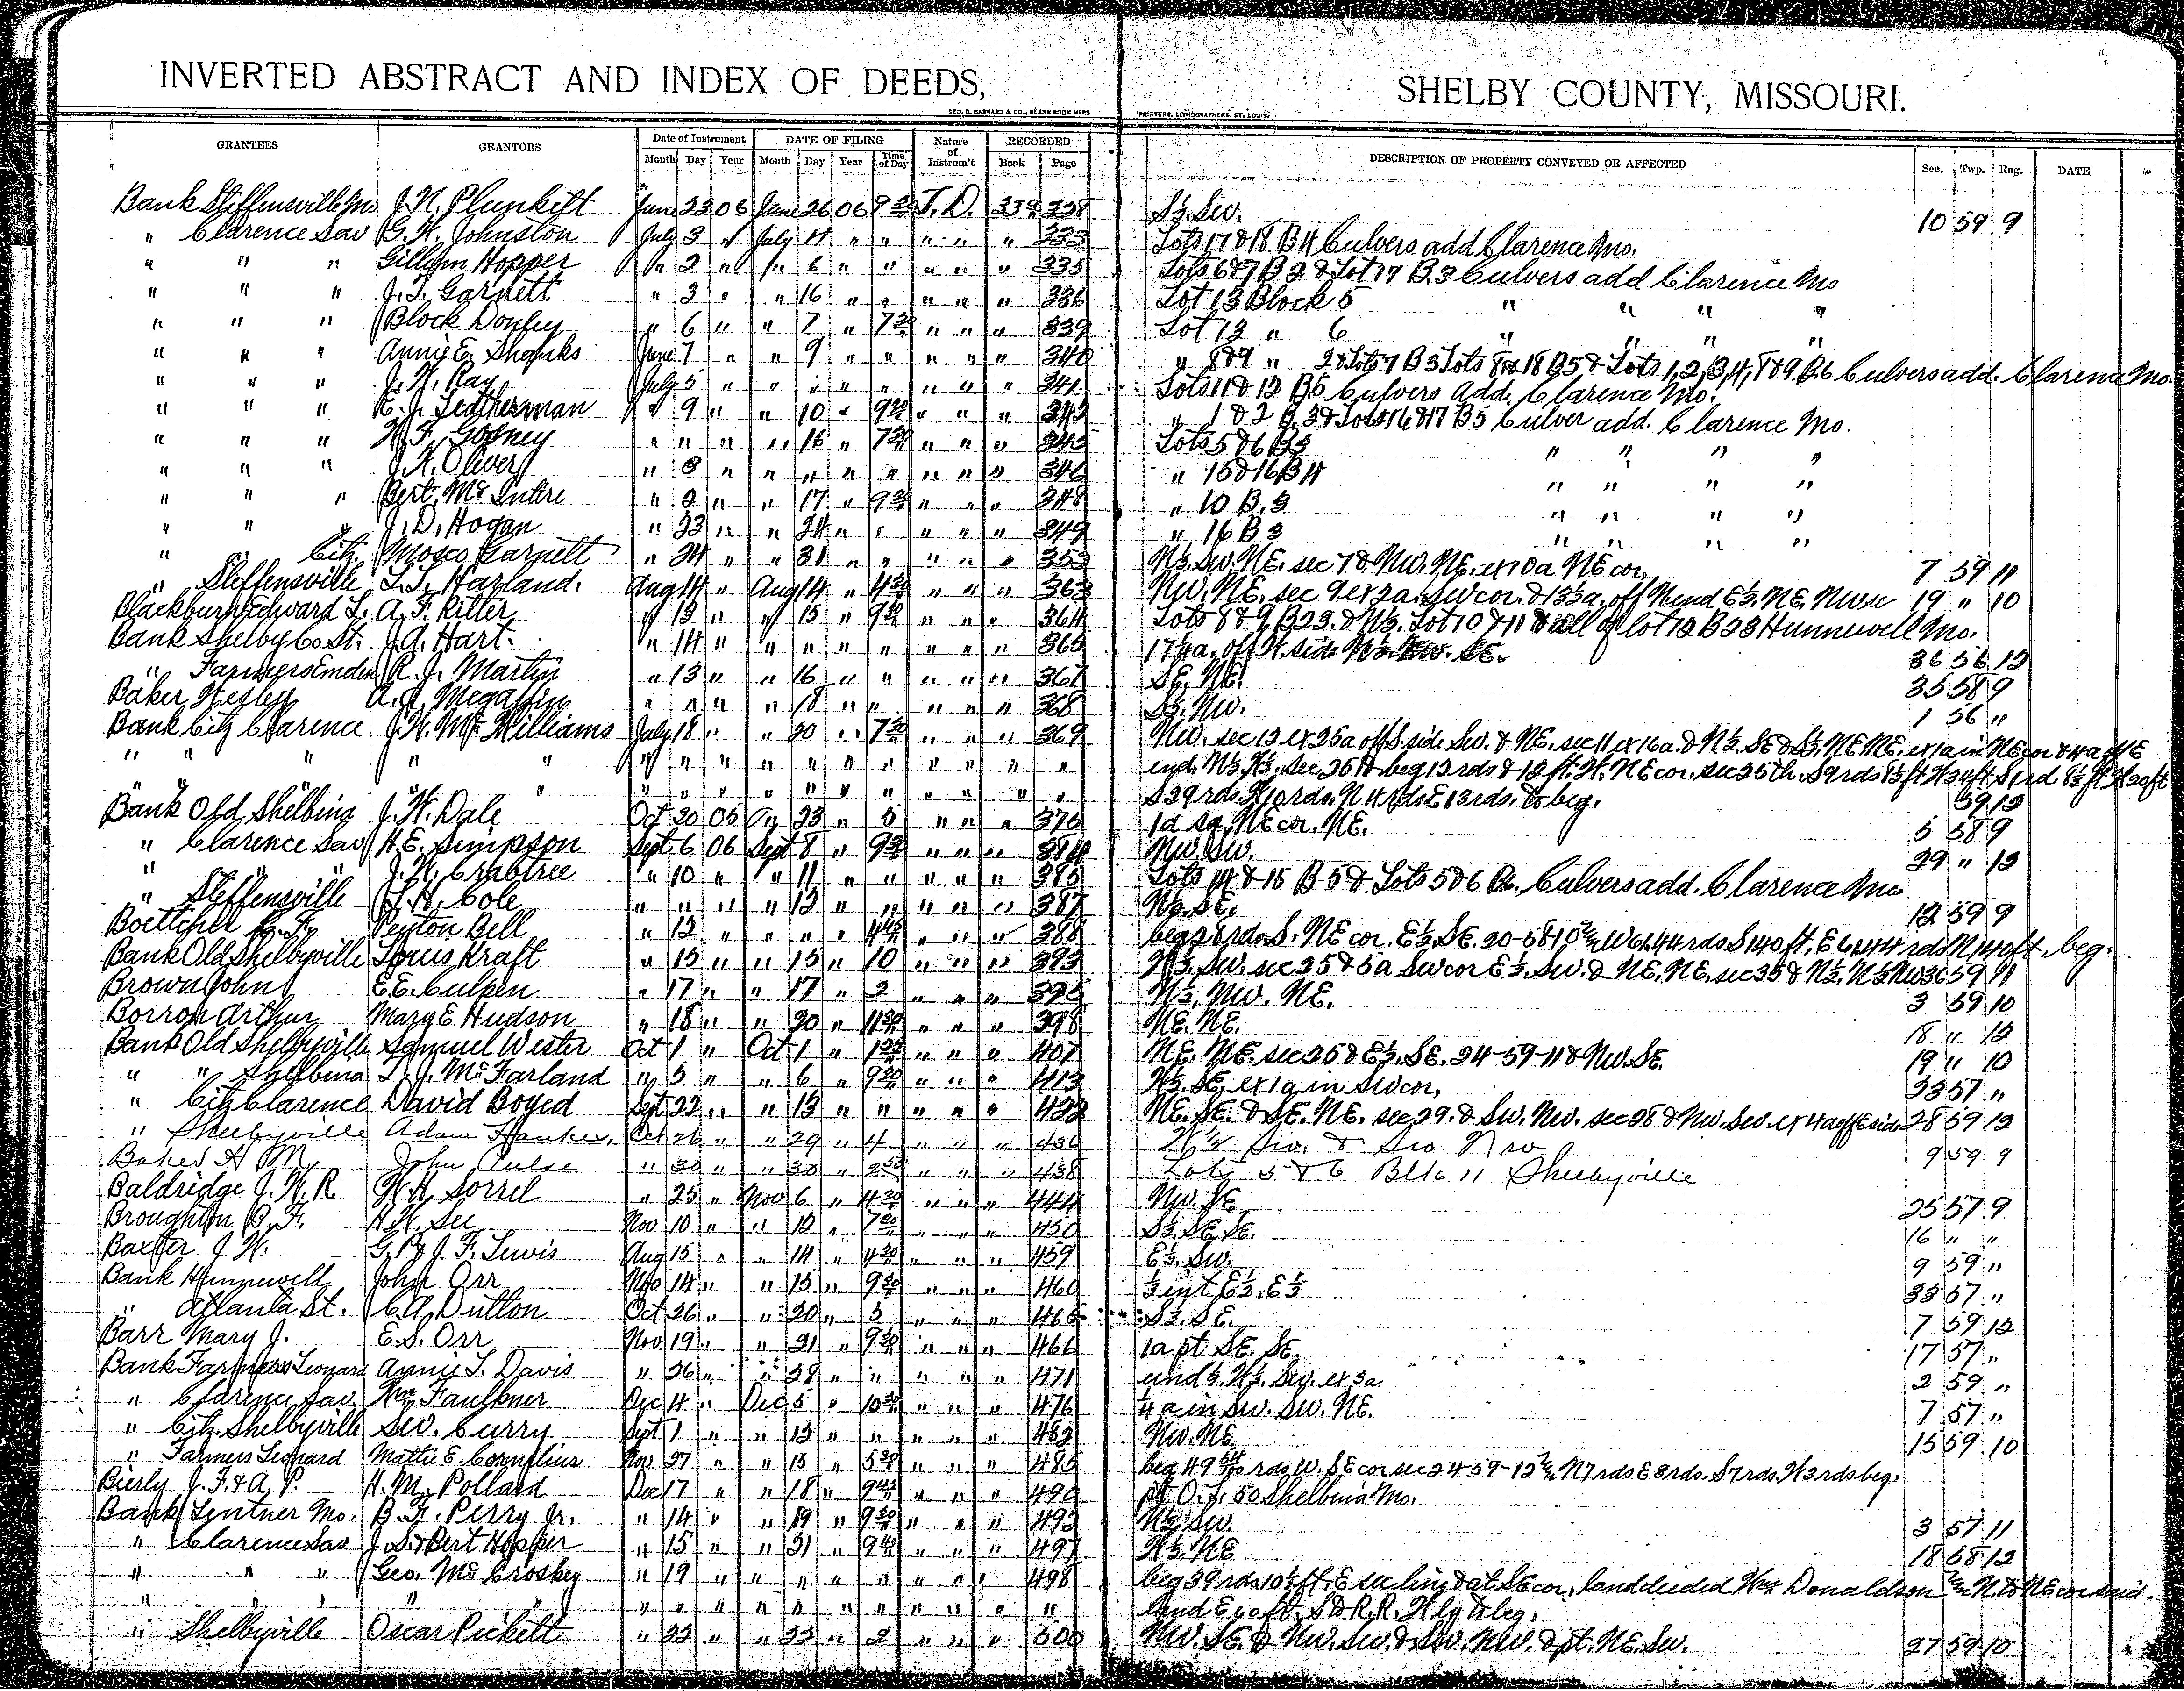 INVERTED ABSTRACT AND INDEX OF DEEDS, SHELBY COUNTY, MISSOURI.
GEO. D. BARNARD & CO., BLANK BOOK MFRS PRINTERS, LITHOGRAPHERS, ST. LOUIS.
GRANTEES GRANTORS Date of Instrument DATE OF FILING Nature of Instrum't RECORDED DESCRIPTION OF PROPERTY CONVEYED OR AFFECTED Sec. Twp. Rng. DATE
Month Day Year Month Day Year Time of Day Book Page
Bank Steffensville Mo. J. H. Plunkett June 23 06 June 26 06 9 30 T. D. 339 328 S½. Sw. 10 59 9
" Clarence Sav G. H. Johnston July 3 " July 4 " " " " " 333 Lots 17 & 18 B 4 Culvers add Clarence Mo.
" " " Gillum Hopper " 2 " " 6 " " " " " 335 Lots 6 & 7 B 2 & Lot 17 B. 3 Culvers add Clarence Mo
" " " J. T. Garnett " 3 " " 16 " " " " " 336 Lot 13 Block 5 " " " "
" " " Block Donley " 6 " " 7 " 7 30 " " " 339 Lot 12 " 6 " " " "
" " " Annie E. Shanks June 7 " " 9 " " " " " 340 " 8 & 9 " 2 & Lots 7 B 3 Lots 8 & 18 B 5 & Lots 1, 2, 3, 4, 8 & 9 B. 6 Culvers add. Clarence Mo.
" " " J. H. Ray July 5 " " " " " " " " 341 Lots 11 & 12 B 5 Culvers Add. Clarence Mo.
" " " E. J. Leatherman " 9 " " 10 " 9 30 " " " 343 " 1 & 2 B. 3 & Lots 16 & 17 B 5 Culver add. Clarence Mo.
" " " H. F. Gosney " " " " 16 " 7 30 " " " 345 Lots 5 & 6 B 3 " " " "
" " " J. K. Oliver " 3 " " " " " " " " 346 " 15 & 16 B 4 " " " "
" " " Bert Mc Intire " 2 " " 17 " 9 30 " " " 348 " 10 B. 3 " " " "
" " J. D. Hogan " 23 " " 24 " " " " " 349 " 16 B 3 " " " "
" Citz. Mosco Garnett " 24 " " 31 " " " " " 353 N½. Sw. N.E. sec 7 & Nw. N.E. ex 10 a NE cor. 7 59 11
" Steffensville L. T. Harland. Aug 14 " Aug 14 " 4 30 " " " 363 Nw. N.E. sec 9 ex 2 a. Sw cor. & 13½ a. off N end E½. N.E. Nw sec 19 " 10
Blackburn Edward L. A. F. Ritter " 13 " " 15 " 9 30 " " " 364 Lots 8 & 9, B 23. & N½. Lot 10 & 11 & all of lot 12 B 23 Hunnewell Mo.
Bank Shelby Co St. J. A. Hart. " 14 " " " " " " " " 365 17½ a. off W. side N½. Nw. SE. 36 56 12
" Farmers Emden R. J. Martin " 13 " " 16 " " " " " 367 SE. NE. 35 58 9
Baker Wesley A. A. Megaffin " " " " 18 " " " " " 368 S½. Nw. 1 56 "
Bank Citz Clarence J. H. Mc Williams July 18 " " 20 " 7 30 " " " 369 Nw. sec 12 ex 25 a off S side Sw. & NE. sec 11 ex 16 a. & N½. SE & S½. NE NE. ex 1 a in NE cor & 4 a off E
" " " " " " " " " " " " " " end. N½. N½. sec 26 & beg 12 rds & 12 ft. W. NE cor. sec 25 th. S 9 rds 8½ ft W 34 ft S 1 rd 8½ ft W 20 ft
" " " " " " " " " " " " " S 29 rds. W 10 rds. N 4 rds E 13 rds. to beg. 59 12
Bank Old Shelbina J. W. Dale Oct 30 05 Aug 23 " 5 " " " 375 1 a sq. NE cor. NE. 5 58 9
" Clarence Sav H. E. Simpson Sept 6 06 Sept 8 " 9 30 " " " 384 Nw. Sw. 29 " 12
" " " J. H. Crabtree " 10 " " 11 " " " " " 385 Lots 14 & 15 B 5 & Lots 5 & 6 B6. Culvers add. Clarence Mo
" Steffensville J. H. Cole " " " " 12 " " " " " 387 N½. SE. 12 59 9
Boettcher C. F. Peyton Bell " 12 " " " " 4 45 " " " 388 beg 28 rds. S. NE cor. E½. SE. 20-58-10 W 61.44 rds S 140 ft. E 61.44 rds N 140 ft. beg.
Bank Old Shelbyville Louis Kraft " 15 " " 15 " 10 " " " 393 W½. Sw. sec 25 & 5 a Sw cor E½. Sw. & NE. NE. sec 35 & N½. N½ Nw 36 59 11
Brown John E. E. Culpen " 17 " " 17 " 2 " " " 395 N½. Nw. NE. 3 59 10
Borron Arthur Mary E Hudson " 18 " " 20 " 11 30 " " " 398 NE. NE. 18 " 12
Bank Old Shelbyville Samuel Wester Oct 1 " Oct 1 " 1 30 " " " 407 NE. NE. sec 25 & E½. SE. 24-59-11 & Nw. SE. 19 " 10
" " Shelbina T. J. Mc Farland " 5 " " 6 " 9 30 " " " 413 W½. SE, ex 1 a in Sw cor, 33 57 "
" Citz Clarence David Boyed Sept 22 " " 13 " " " " " 422 NE. SE. & SE. NE. sec 29. & Sw. Nw. sec 28 & Nw. Sw. ex 4 a off E side 28 59 12
" Shelbyville Adam Hawker, Oct 26 " " 29 " 4 " " " 436 W ¼ Sw. & Sw Nw 9 59 9
Baker A M John Pulse " 30 " " 30 " 2 50 " " " 438 Lots 5 & 6 Blk 11 Shelbyville
Baldridge J. H. R W. H. Sorrel " 25 " Nov 6 " 4 30 " " " 444 Nw. SE 25 57 9
Broughton B. F. H. W. See Nov 10 " " 12 " 7 30 " " " 450 S½. SE. SE. 16 " "
Baxter J. W. G. P. & J. F. Lewis Aug 15 " " 14 " 4 30 " " " 459 E½. Sw. 9 59 "
Bank Hunnewell John Orr Nov 14 " " 15 " 9 30 " " " 460 ½ int E½. E½ 33 57 "
" Atlanta St. C. A. Dutton Oct 26 " " 20 " 5 " " " 465 S½. SE. 7 59 12
Barr Mary J. E. S. Orr Nov 19 " " 21 " 9 30 " " " 466 1 a pt. SE. SE. 17 57 "
Bank Farmers Leonard Annie L. Davis " 26 " " 28 " " " " " 471 und ½. W½. Sw. ex 3 a 2 59 "
" Clarence Sav. Wm Faulkner Dec 4 " Dec 5 " 10 30 " " " 476 ¼ a in Sw. Sw. NE. 7 57 "
" Citz. Shelbyville S.W. Curry Sept 1 " " 15 " " " " " 482 Nw. NE 15 59 10
" Farmers Leonard Mattie E. Cornelius Nov 27 " " 15 " 5 30 " " " 485 beg 49 rds W. SE cor sec 24-59-12 N 7 rds E 3 rds. S 7 rds. W 3 rds beg.
Bierly J. F. & A. P. H. M. Pollard Dec 17 " " 18 " 9 45 " " " 490 pt O. L. 50 Shelbina Mo.
Bank Lentner Mo. B. F. Perry Jr. " 14 " " 19 " 9 30 " " " 492 N½. Sw. 3 57 11
" Clarence Sav J. S. & Bert Hopper " 15 " " 21 " 9 40 " " " 497 W½. NE 18 58 12
" " " Geo. Mc Croskey " 19 " " " " " " " " 498 beg 39 rds. 10½ ft. E sec line & at SE cor, land deeded Wm Donaldson N. to NE cor said
" " " " " " " " " " " " " " land E 60 ft. S to R.R. W'ly to beg.
" Shelbyville Oscar Pickett " 22 " " 22 " 2 " " " 500 Nw. SE. & Nw. Sw. & Sw. Nw. & pt. NE. Sw. 27 59 10